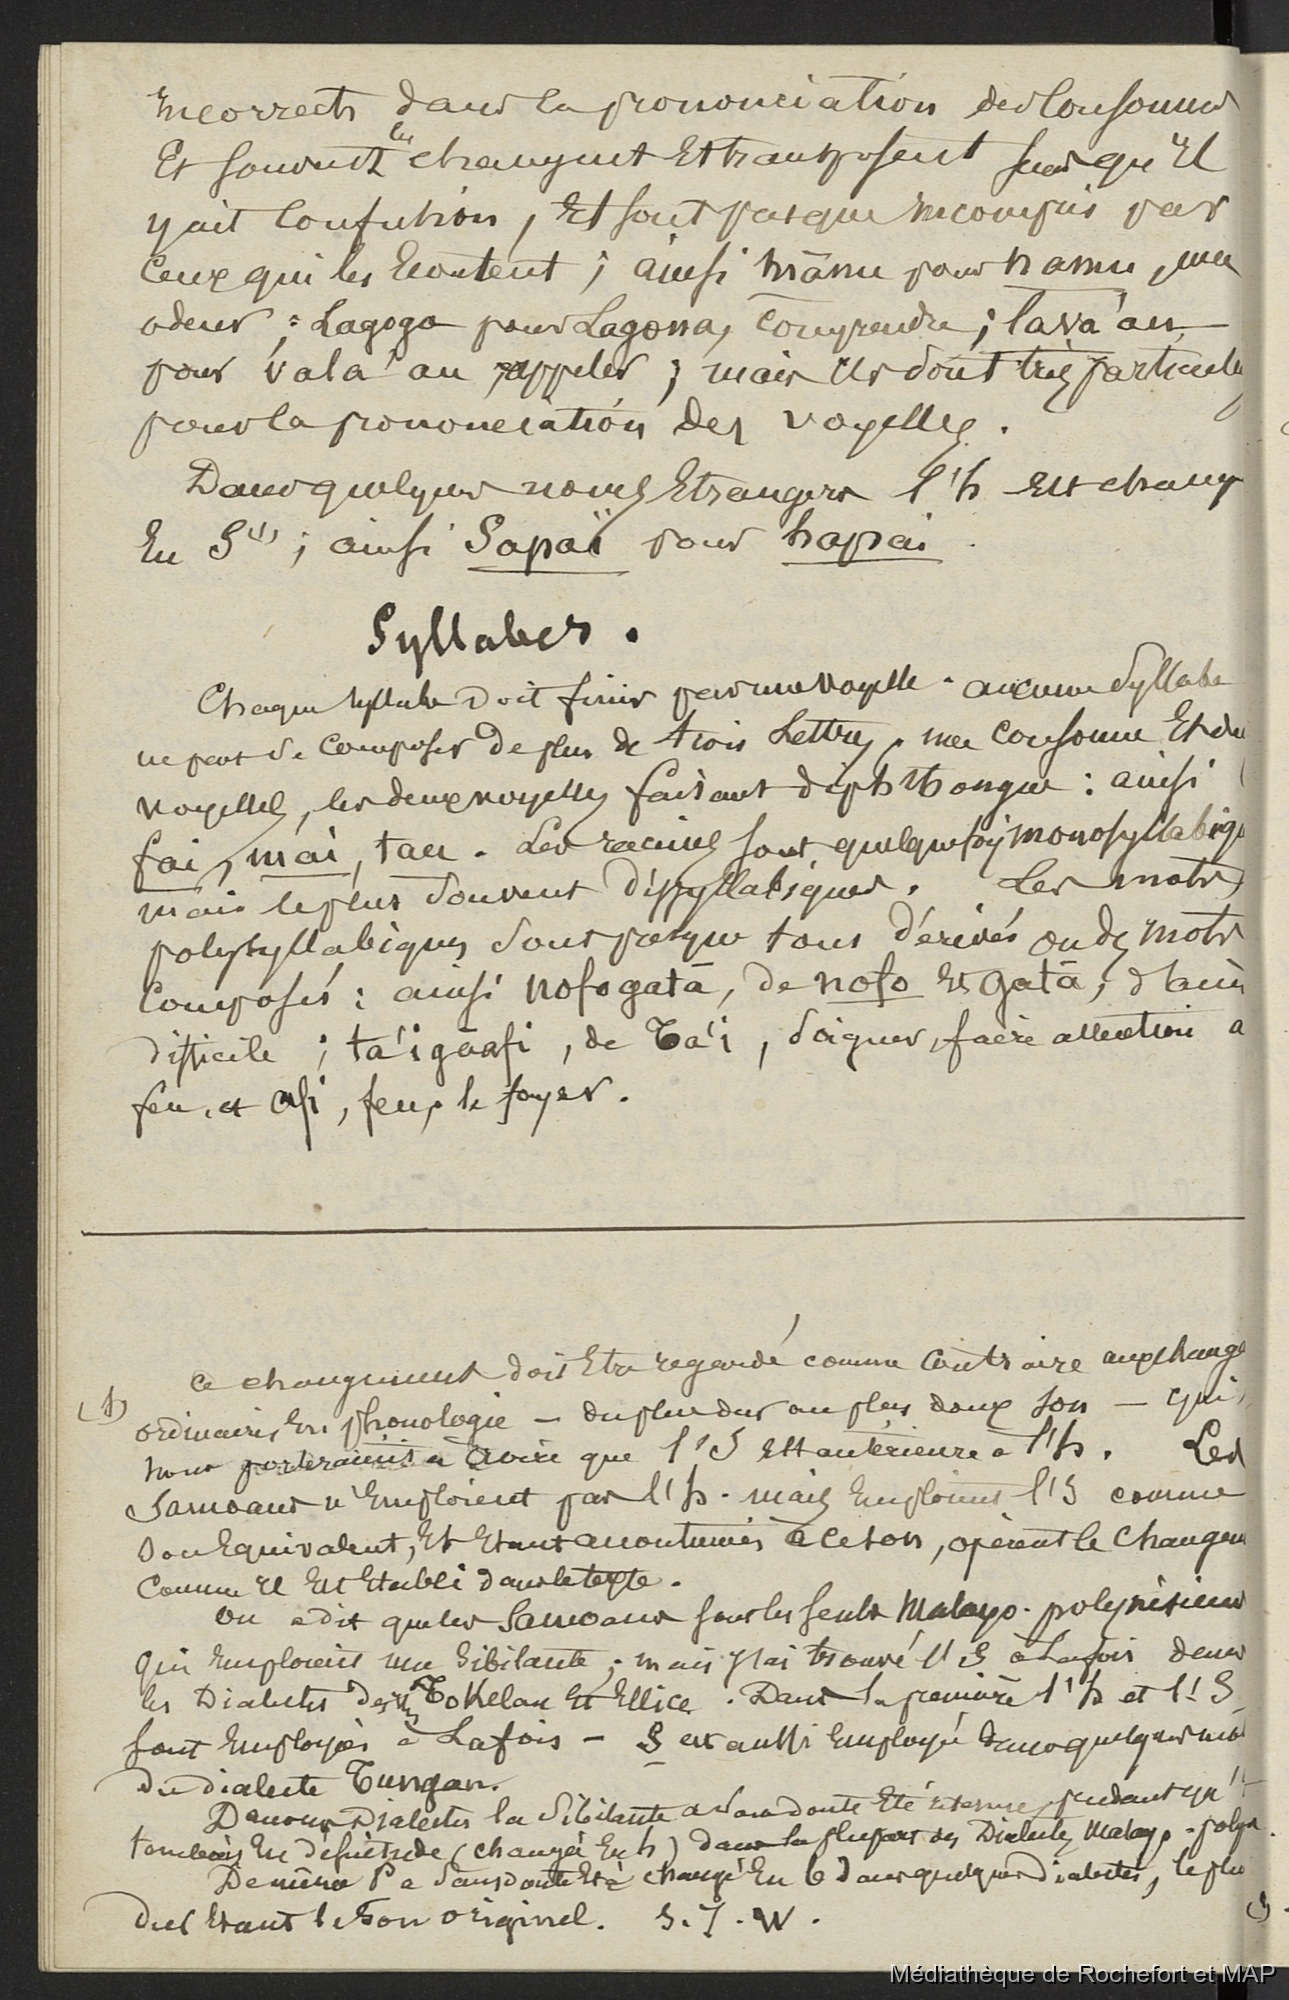 incorrects dans la prononciation des consonnes
Et souvent les changent Et transposent sans qu'il
y ait confusion, Et sont presque incompris par
ceux qui les Ecoutent ; ainsi mānu pour namu, une
odeur ; Lagoga pour Lagona, comprendre ; lava'au
pour vala'au, appeler ; mais ils sont très particuliers
pour la prononciation des voyelles.
Dans quelques noms Etrangers l'h est changé
En S (1) ; ainsi Sapai pour hapai.
Syllabes.
Chaque syllabe doit finir par une voyelle. aucune syllabe
ne peut se composer de plus de trois Lettres, une consonne Et deux
voyelles, les deux voyelles faisant diphthongue : ainsi
fai, mai, tau. Les racines sont quelquefois monosyllabiques
mais le plus souvent dissyllabiques. Les mots
polysyllabiques sont presque tous dérivés ou des mots
composés : ainsi nofogatā, de nofo Et gatā,
difficile ; ta'igāafi, de Ta'i, soigner, faire attention a
feu, et Afi, feu, le foyer.
(1) Ce changement doit Etre regardé comme contraire aux change
ordinaires En phonologie – du plus dur au plus doux son – qui
nous porteraient à croire que l'S est antérieure à l'h. Les
Samoans n'Emploient pas l'h. mais Emploient l'S comme
son Equivalent, Et Etant accoutumés à ce son, opèrent le changem
comme il Est Etabli dans le texte.
on a dit que les Samoans sont les seuls Malayo-polynésiens
qui Emploient une Sibilante ; mais j'ai trouvé l'S à la fois dans
les Dialectes des Iles Tokelau Et Ellice. Dans la première l'h et l'S
sont Employés à La fois – S est aussi Employé dans quelques mo
du dialecte Tungan.
Dans ces Dialectes la Sibilante a sans doute Eté retenue, pendant qu'
tombais En désuétude (changée En h) dans la plupart des Dialectes Malayo-polyn.
De même P a sans doute Eté changé En b dans quelques Dialectes, le plus
dur Etant le son originel. S. J. W.
Médiathèque de Rochefort et MAP